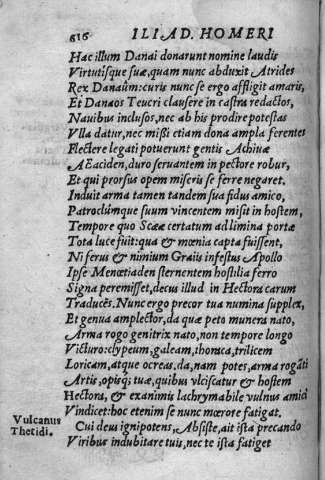 616 ILIAD. HOMERI
Hac illum Danai donarunt nomine laudis
Virtutisque suæ, quam nunc abduxit Atrides
Rex Danaûm: curis nunc se ergo affligit amaris,
Et Danaos Teucri clausere in castra redactos,
Nauibus inclusos, nec ab his prodire potestas
Vlla datur, nec mißi etiam dona ampla ferentes
Flectere legati potuerunt gentis Achiuæ
AEaciden, duro seruantem in pectore robur,
Et qui prorsus opem miseris se ferre negaret.
Induit arma tamen tandem sua fidus amico,
Patroclúmque suum vincentem misit in hostem,
Tempore quo Scææ certatum ad limina portæ
Tota luce fuit: qua & mœnia capta fuissent,
Ni ferus & nimium Graiis infestus Apollo
Ipse Menœtiaden sternentem hostilia ferro
Signa peremisset, decus illud in Hectora carum
Traducẽs. Nunc ergo precor tua numina supplex,
Et genua amplector, da quæ peto munera nato,
Arma rogo genitrix nato, non tempore longo
Victuro: clypeum, galeam, thoraca, trilicem
Loricam, atque ocreas, da, nam potes, arma rogãti
Artis, opisq; tuæ, quibus vlciscatur & hostem
Hectora, & exanimis lachrymabile vulnus amici
Vindicet: hoc etenim se nunc mœrore fatigat.
Vulcanus Thetidi.
Cui deus ignipotens, Absiste, ait ista precando
Viribus indubitare tuis, nec te ista fatiget